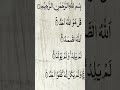 بِسْمِ اللهِ الرَّحْمٰنِ الرَّحِيْمِ
قُلْ هُوَ اللهُ اَحَدٌ
اَللهُ الصَّمَدُ
لَمْ يَلِدْ وَلَمْ يُوْلَدْ
وَلَمْ يَكُنْ لَّهٗ كُفُوًا اَحَدٌ